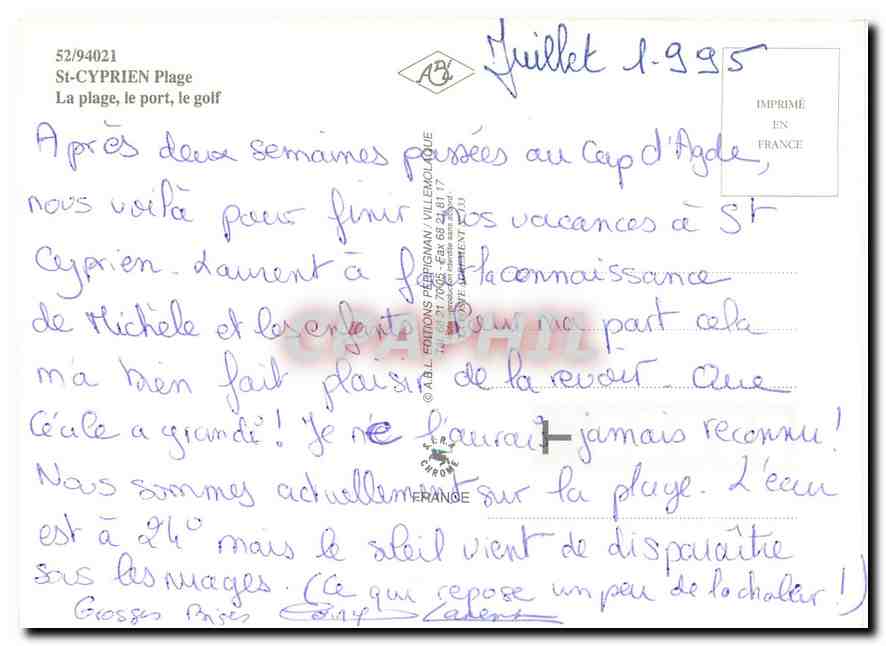 52/94021
St-CYPRIEN Plage
La plage, le port, le golf
ABL
Juillet 1.995
IMPRIMÉ
EN
FRANCE
Après deux semaines passées au Cap d'Agde,
nous voilà pour finir nos vacances à St
Cyprien. Laurent à fait la connaissance
de Michèle et les enfants pour ma part cela
m'a bien fait plaisir de la revoir. Que
Cécile a grandi! Je ne l'aurais jamais reconnu!
Nous sommes actuellement sur la plage. L'eau
est à 24° mais le soleil vient de disparaître
sous les nuages. (Ce qui repose un peu de la chaleur!)
Grosses Bises Laurent
© A.B.L. EDITIONS PERPIGNAN / VILLEMOLAQUE
Tél. 68 21 70 05 - Fax 68 21 81 17
Reproduction interdite sans accord
CHROME
FRANCE
CPAPHIL